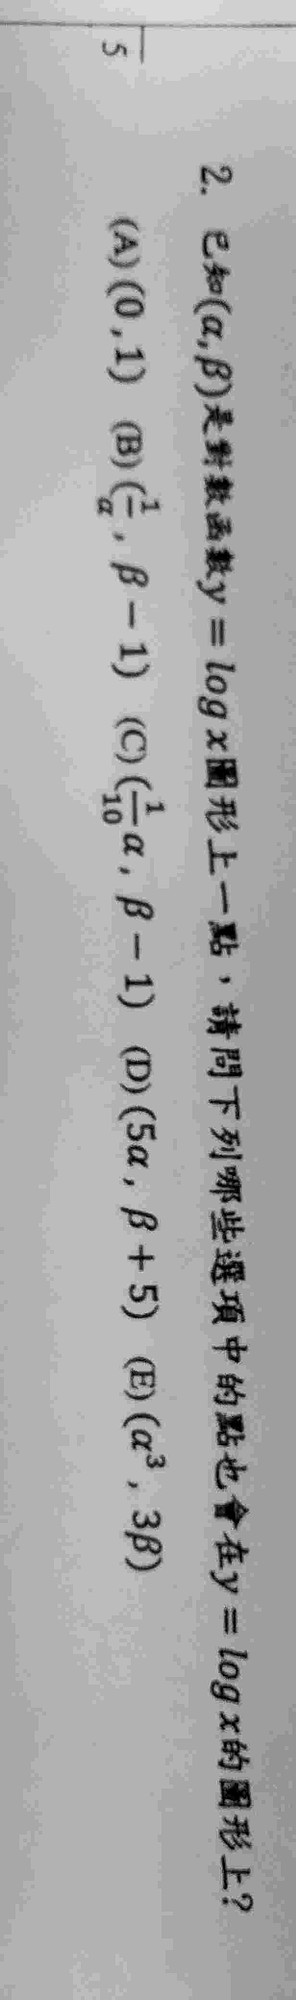 5
2. 已知(α,β)是對數函數y = log x圖形上一點，請問下列哪些選項中的點也會在y = log x的圖形上?
(A) (0 , 1) (B) (1/α , β − 1) (C) (1/10 α , β − 1) (D) (5α , β + 5) (E) (α³ , 3β)